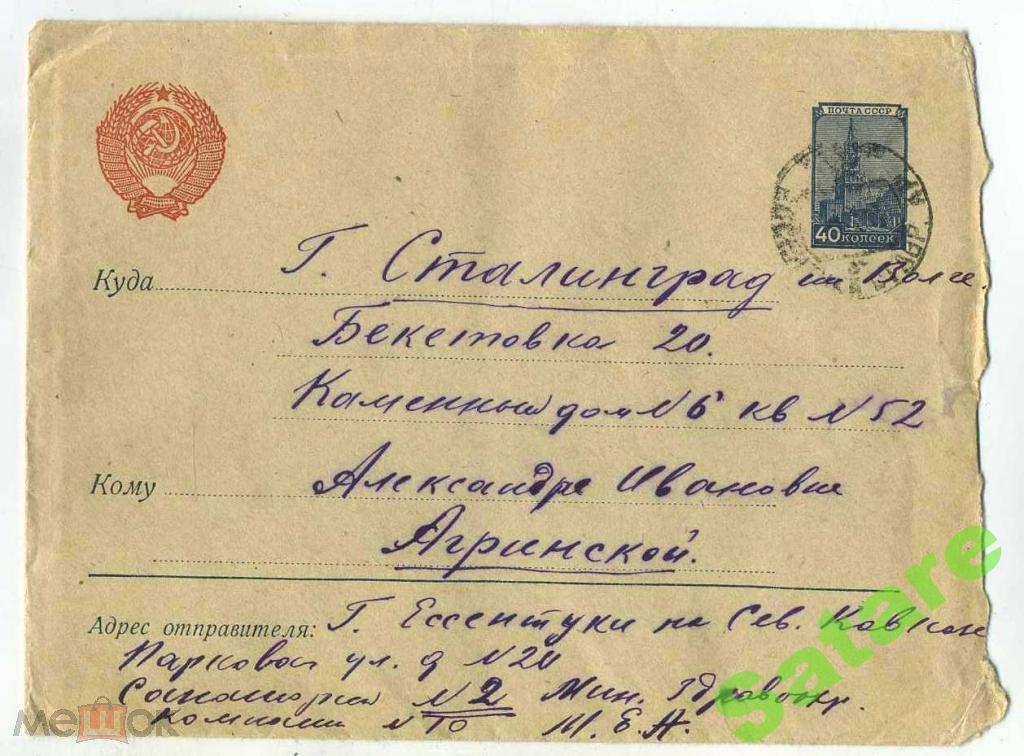 ПОЧТА СССР
40 КОПЕЕК
Куда Г. Сталинград на Волге.
Бекетовка 20.
Каменный дом №6 кв №52
Кому Александре Ивановне
Агринской.
Адрес отправителя: Г. Ессентуки на Сев. Кавказе
Парковая ул. д №20
Санатории №2 Мин. Здравохр.
комната №10 М. Е. А.
Satare
мешок